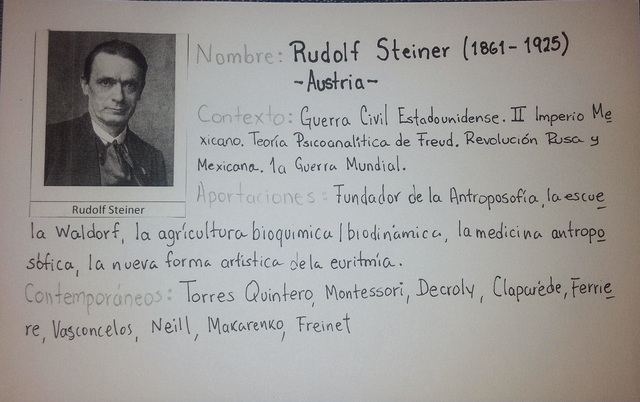 Nombre: Rudolf Steiner (1861-1925)
-Austria-
Contexto: Guerra Civil Estadounidense. II Imperio Me
xicano. Teoría Psicoanalítica de Freud. Revolución Rusa y
Mexicana. 1a Guerra Mundial.
Aportaciones: Fundador de la Antroposofía, la escue
Rudolf Steiner
la Waldorf, la agricultura bioquimica/biodinámica, la medicina antropo
sófica, la nueva forma artística de la euritmia.
Contemporáneos: Torres Quintero, Montessori, Decroly, Claparéde, Ferrie
re, Vasconcelos, Neill, Makarenko, Freinet